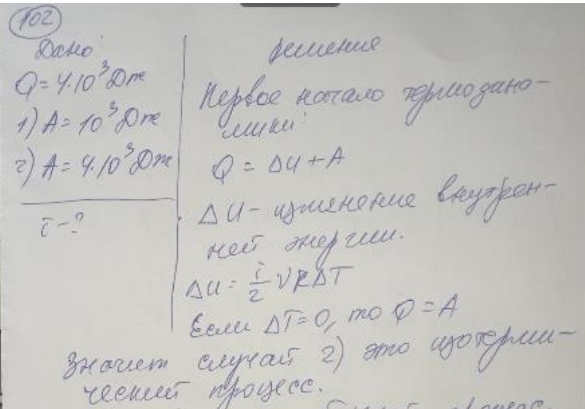 102
Дано:
Q = 4·10³ Дж
1) A = 10³ Дж
2) A = 4·10³ Дж
i - ?
Решение
Первое начало термодина-
мики:
Q = ΔU + A
ΔU - изменение внутрен-
ней энергии.
ΔU = i/2 νRΔT
Если ΔT = 0, то Q = A
Значит случай 2) это изотерми-
ческий процесс.
процесс.